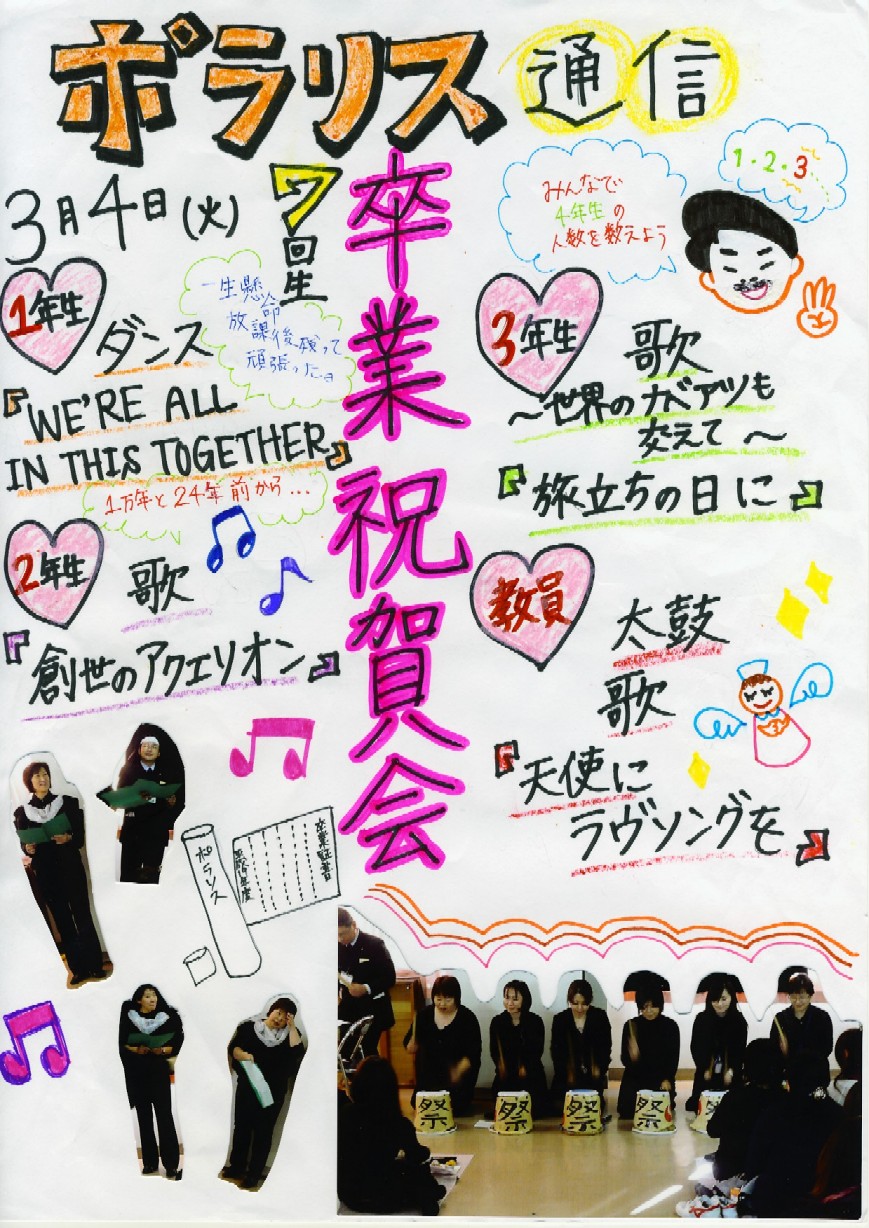 ポラリス通信
3月4日(火)
7回生
卒業祝賀会
1年生
ダンス
一生懸命
放課後残って
頑張ったョ
『WE'RE ALL
IN THIS TOGETHER』
1万年と24年前から…
2年生
歌
『創世のアクエリオン』
みんなで
4年生の
人数を数えよう
1・2・3….
3年生
歌
～世界のナベアツも
交えて～
『旅立ちの日に』
教員
太鼓
歌
『天使に
ラヴソングを』
ポラリス
卒業証書
祭
祭
祭
祭
祭